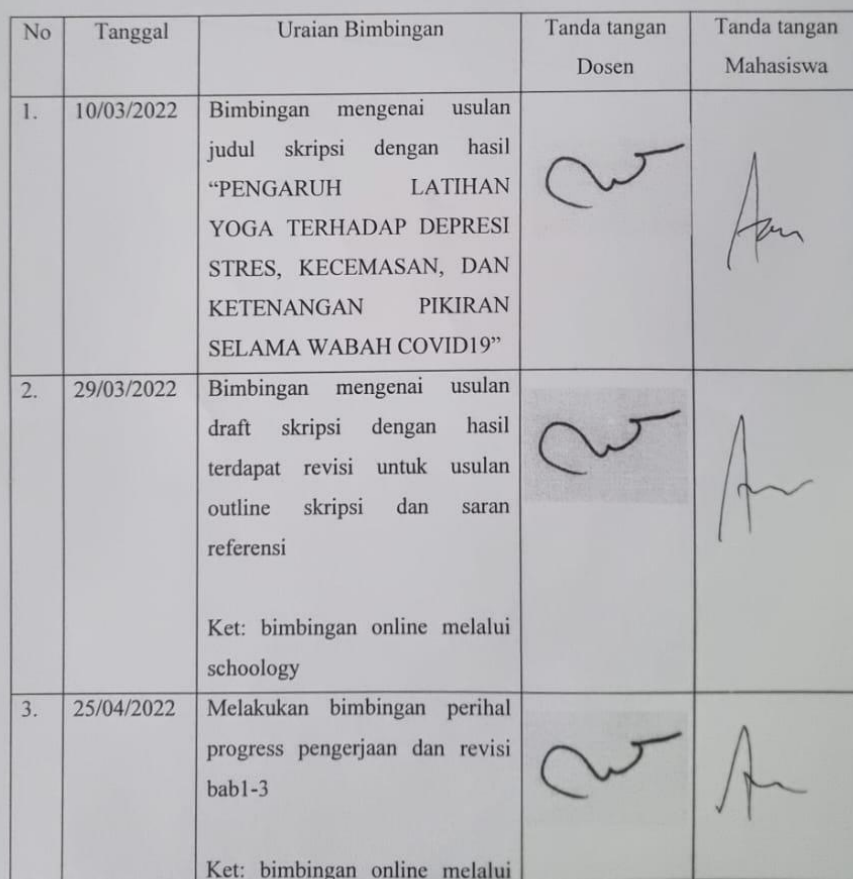 No Tanggal Uraian Bimbingan Tanda tangan Tanda tangan
Dosen Mahasiswa
1. 10/03/2022 Bimbingan mengenai usulan
judul skripsi dengan hasil
“PENGARUH LATIHAN
YOGA TERHADAP DEPRESI
STRES, KECEMASAN, DAN
KETENANGAN PIKIRAN
SELAMA WABAH COVID19”
2. 29/03/2022 Bimbingan mengenai usulan
draft skripsi dengan hasil
terdapat revisi untuk usulan
outline skripsi dan saran
referensi
Ket: bimbingan online melalui
schoology
3. 25/04/2022 Melakukan bimbingan perihal
progress pengerjaan dan revisi
bab1-3
Ket: bimbingan online melalui